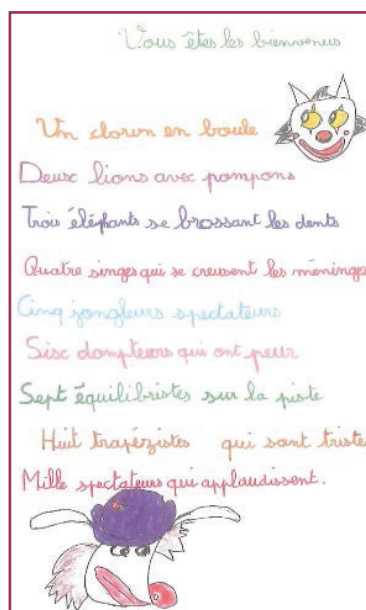 Vous êtes les bienvenus
Un clown en boule
Deux lions avec pompons
Trois éléphants se brossant les dents
Quatre singes qui se creusent les méninges
Cinq jongleurs spectateurs
Six dompteurs qui ont peur
Sept équilibristes sur la piste
Huit trapézistes qui sont tristes
Mille spectateurs qui applaudissent.